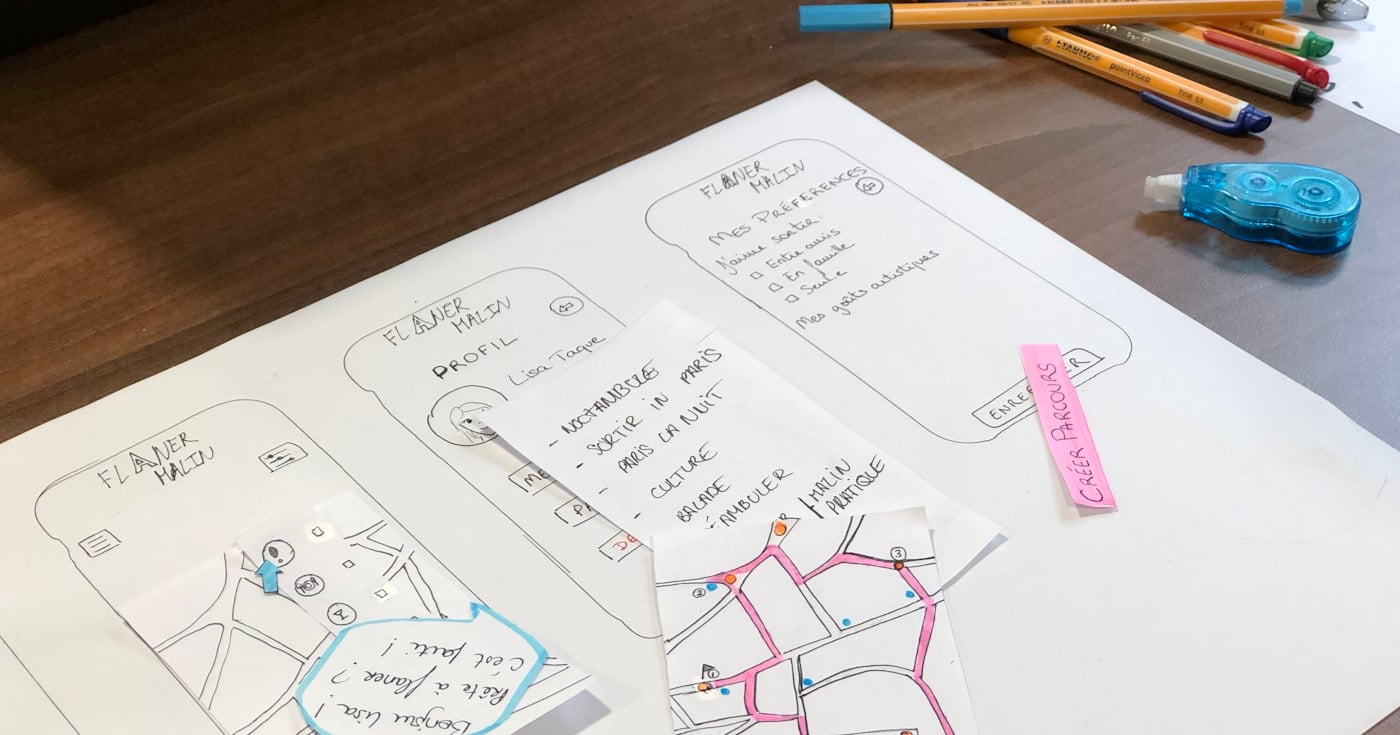 FLANER
MALIN
Bonjour Lisa!
Prête à flaner?
C'est parti!
FLANER
MALIN
PROFIL
Lisa Taque
ME
PA
DE
- NOCTAMBULE
- SORTIR IN PARIS
- PARIS LA NUIT
CULTURE
- BALADE
AMBULER
MALIN
PRATIQUE
2
3
FLANER
MALIN
MES PRÉFERENCES
J'aime sortir:
Entre amis
En famille
Seule
Mes goûts artistiques
ENRE
ER
CRÉER PARCOURS
STABILO pointVisco fine 0.5